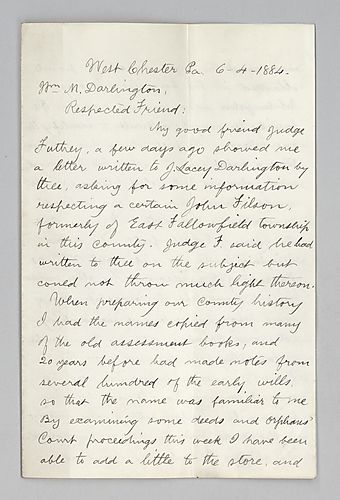 West Chester Pa. 6-4-1884.
Wm M. Darlington,
Respected Friend:
My good friend Judge
Futhey, a few days ago showed me
a letter written to J. Lacey Darlington by
thee, asking for some information
respecting a certain John Filson,
formerly of East Fallowfield township
in this County. Judge F. said he had
written to thee on the subject but
could not throw much light thereon.
When preparing our County history
I had the names copied from many
of the old assessment books, and
20 years before had made notes from
several hundred of the early wills,
so that the name was familiar to me
By examining some deeds and Orphans'
Court proceedings this week I have been
able to add a little to the store, and